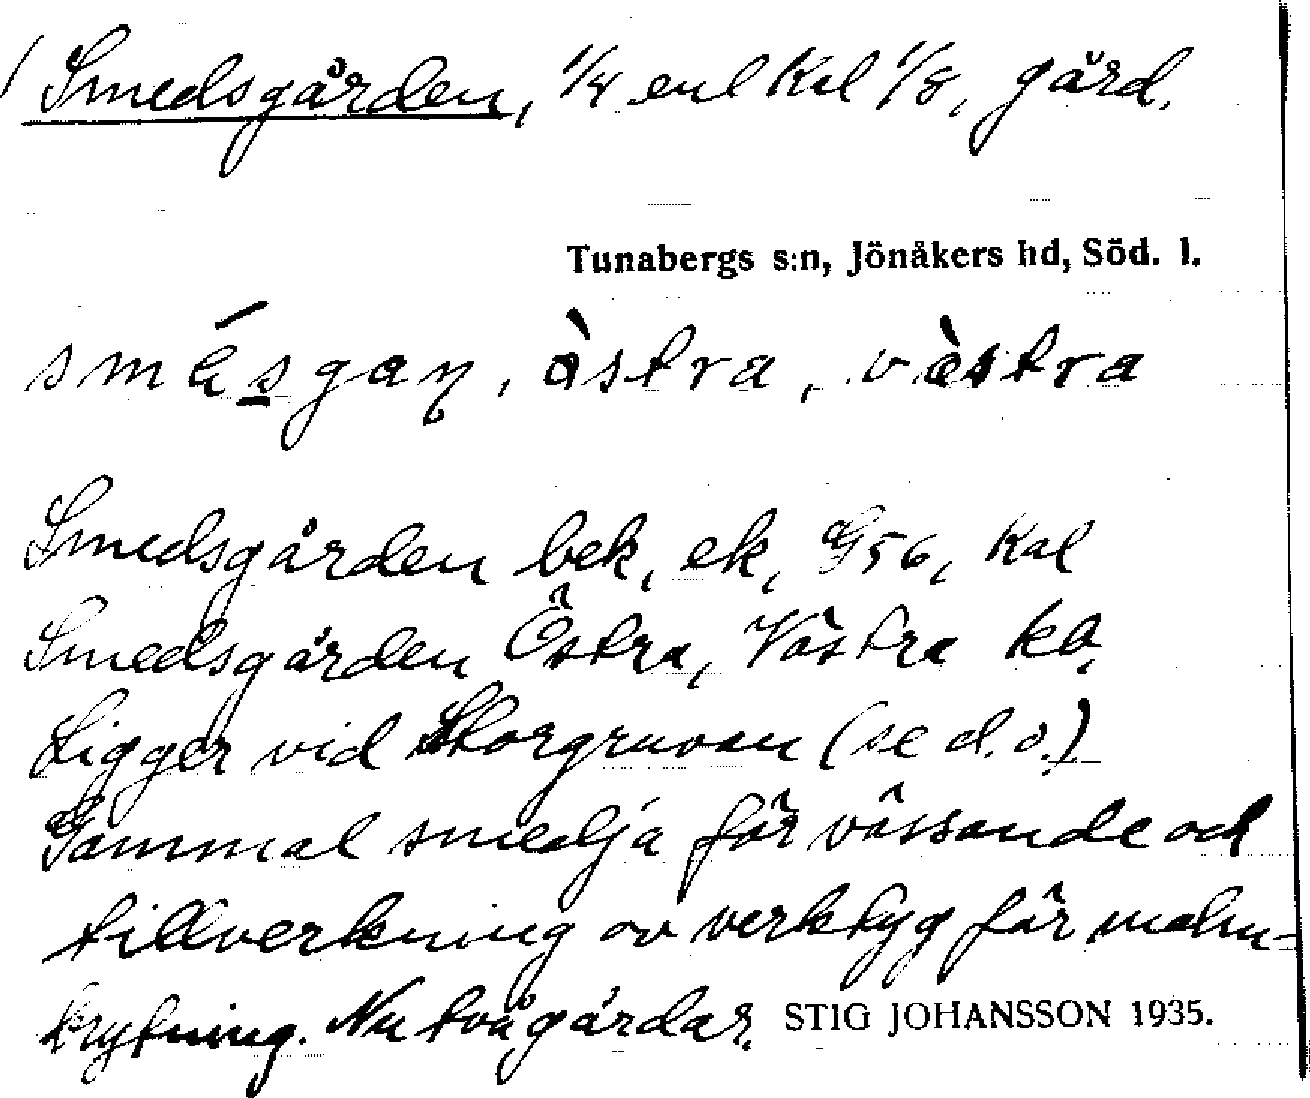 Smedsgården, 1/4 enl Kal 1/8, gård.
Tunabergs s:n, Jönåkers hd, Söd. l.
smésgaɳ, östra, vèstra
Smedsgården bek, ek, G56, Kal
Smedsgården Östra, Västra kb.
Ligger vid Storgruvan (se d.o.)
Gammal smedja för vässande och
tillverkning av verktyg för malm-
brytning. Nu två gårdar.
STIG JOHANSSON 1935.